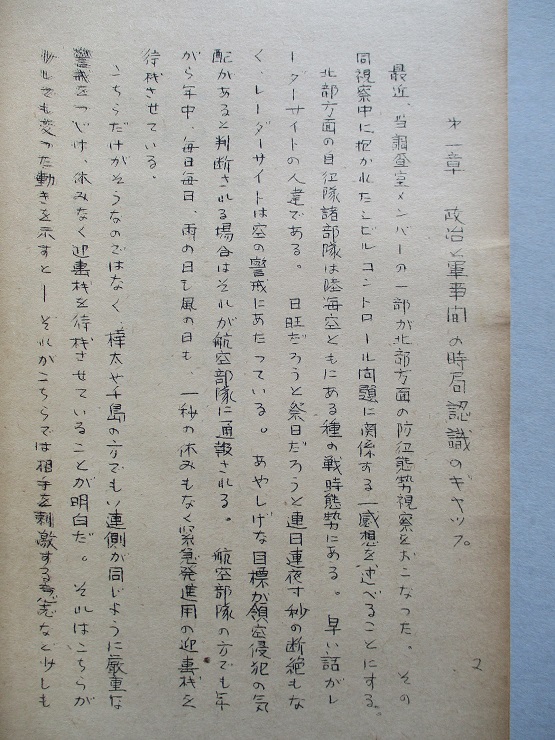 2
才一章　政治と軍事間の時局認識のギャップ。
最近、当調査室メンバーの一部が北部方面の防衛態勢視察をおこなった。その
同視察中に抱かれたシビルコントロール問題に関係する一感想を述べることにする。
北部方面の自衛隊諸部隊は陸海空ともにある種の戦時態勢にある。早い話がレ
ーダーサイトの人達である。日旺だろうと祭日だろうと連日連夜寸秒の断絶もな
く、レーダーサイトは空の警戒にあたっている。あやしげな目標が領空侵犯の気
配があると判断される場合はそれが航空部隊に通報される。航空部隊の方でも年
がら年中、毎日毎日、雨の日も風の日も、一秒の休みもなく緊急発進用の迎撃機を
待機させている。
こちらだけがそうなのではなく、樺太や千島の方でもソ連側が同じように厳重な
警戒をつづけ、休みなく迎撃機を待機させていることが明白だ。それはこちらが
少しでも変った動きを示すと－それがこちらでは相手を刺激する意志など少しも